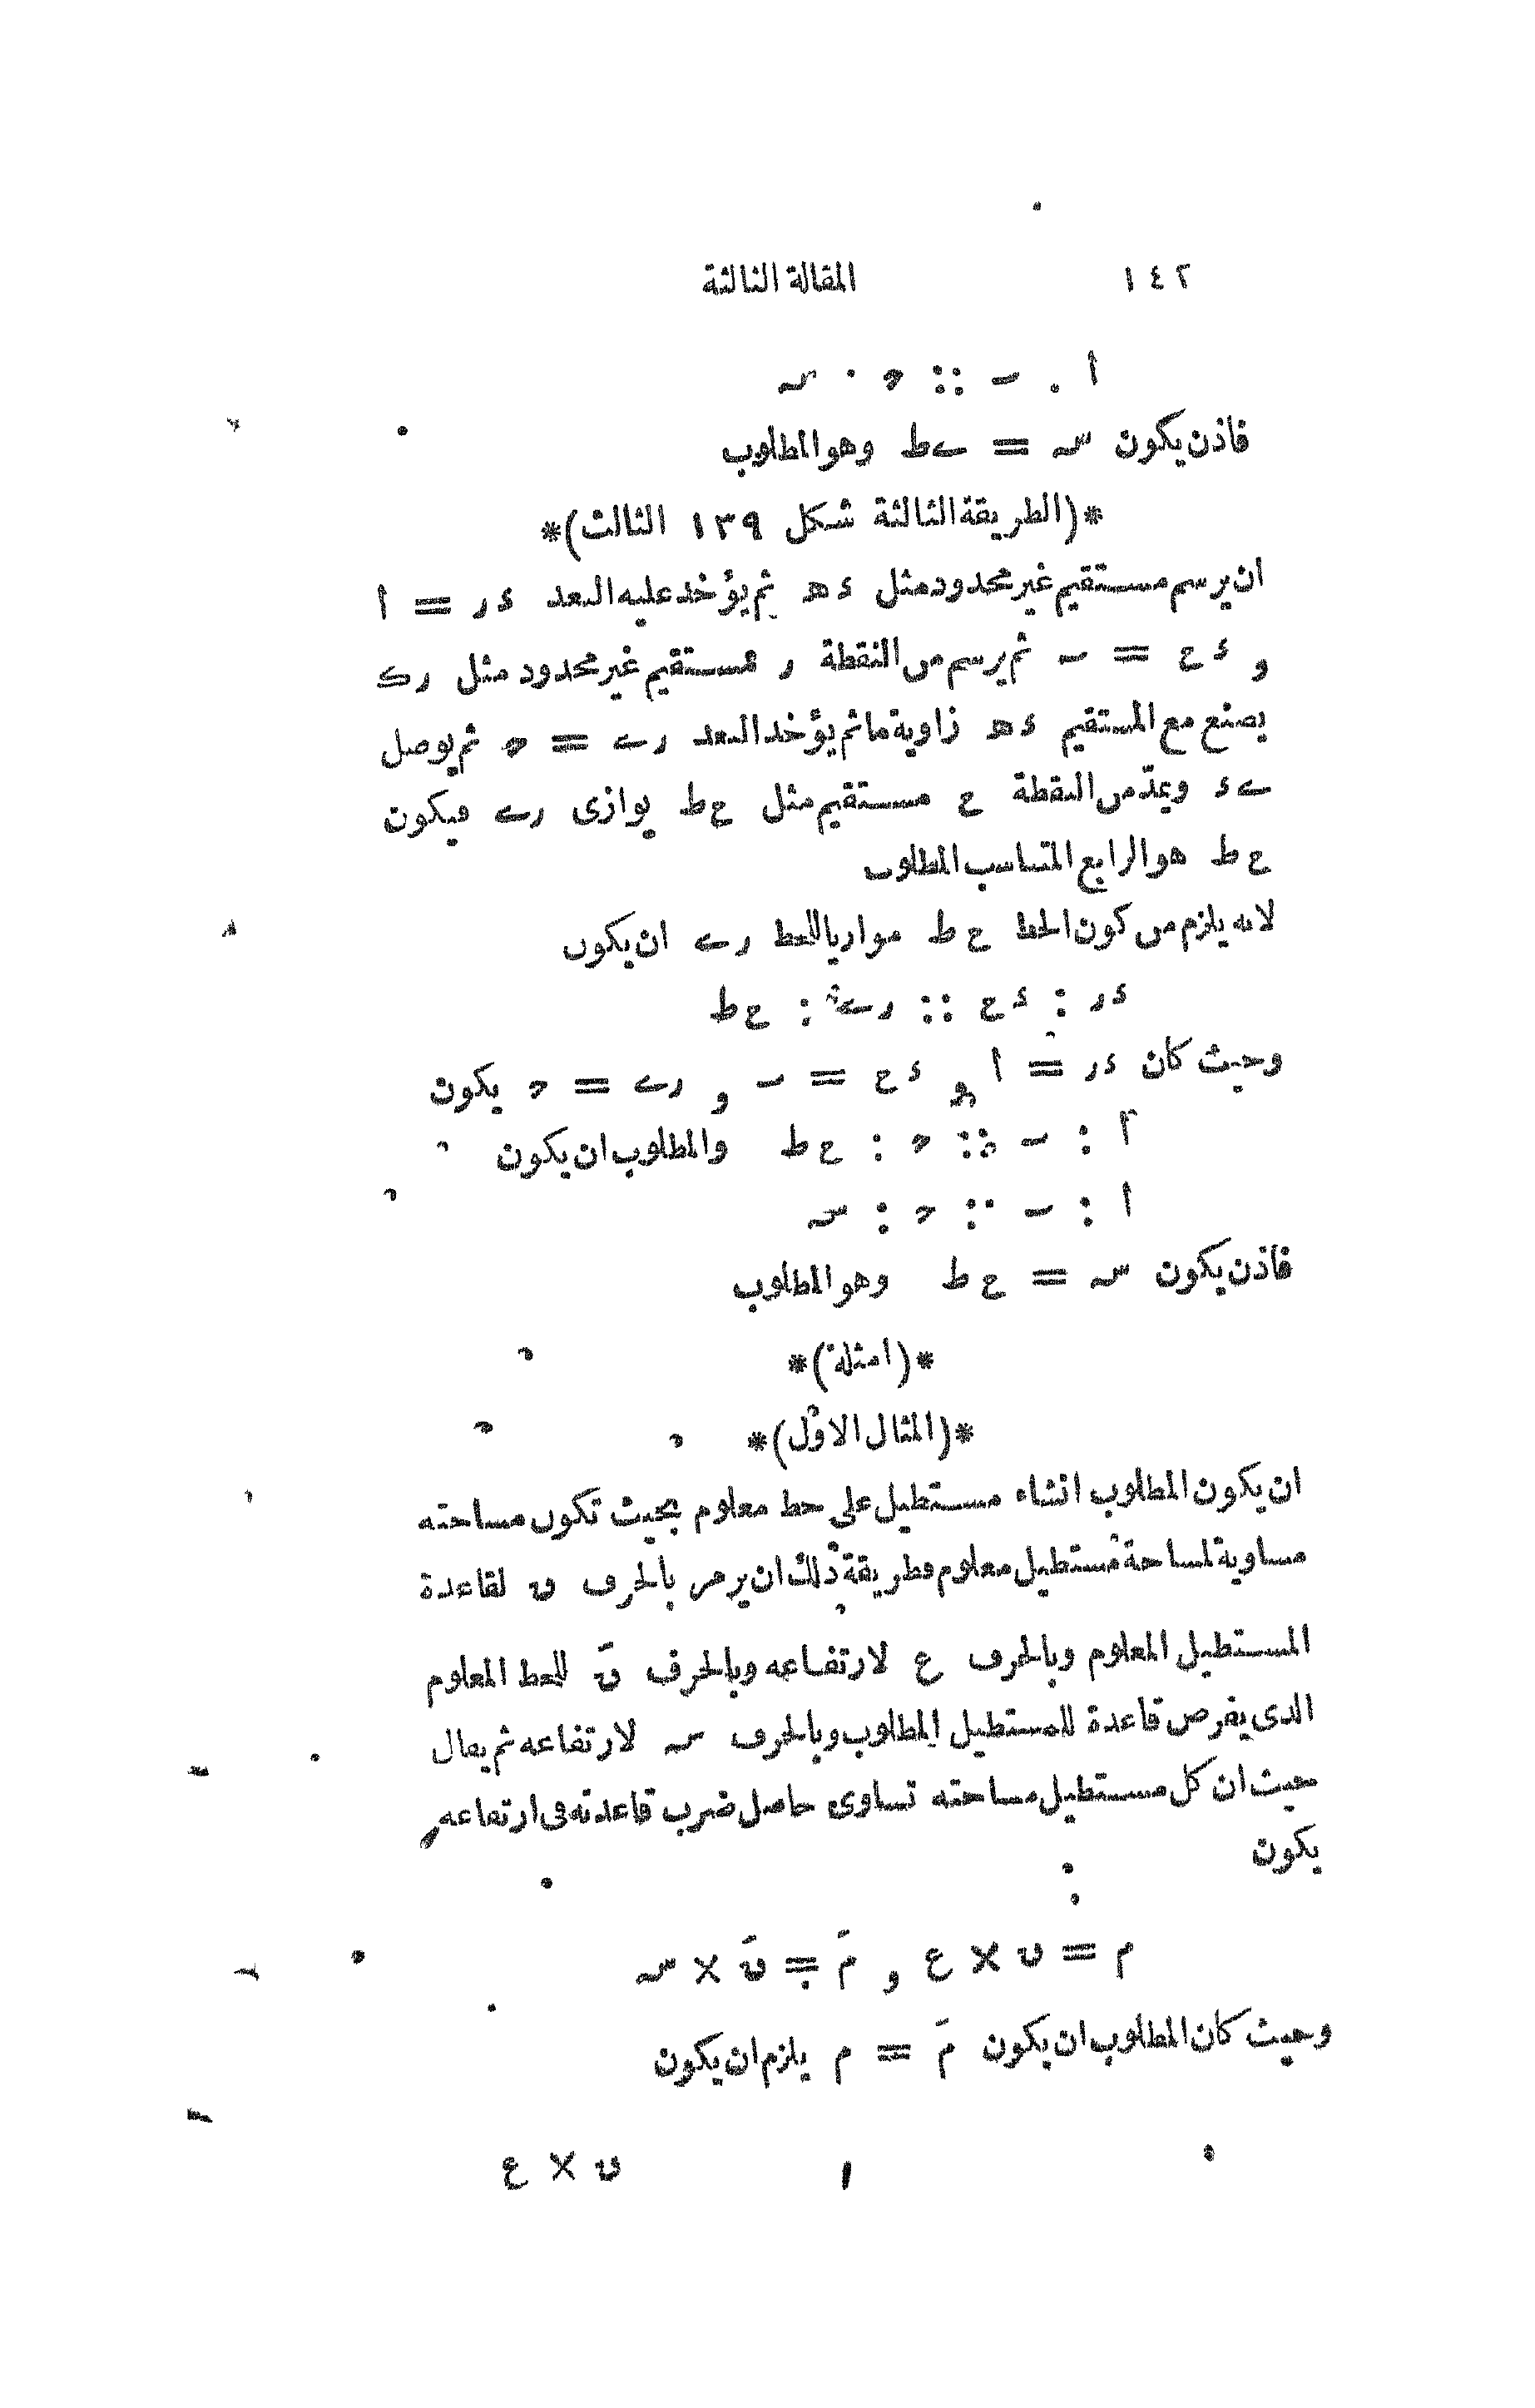 ١٤٢ المقالة الثالثة
ا : ب :: ح : س
فاذن يكون س = ىط وهو المطلوب
*(الطريقة الثالثة شكل ١٣٩ الثالث)*
ان يرسم مستقيم غير محدود مثل ءه ثم يؤخذ عليه البعد ءر = ا
و ءح = ب ثم يرسم من النقطة ر مستقيم غير محدود مثل رك
يصنع مع المستقيم ءه زاوية ما ثم يؤخذ البعد رى = ح ثم يوصل
ىء ويمدّ من النقطة ح مستقيم مثل حط يوازى رى فيكون
حط هو الرابع المتناسب المطلوب
لانه يلزم من كون الخط حط موازيا للخط رى ان يكون
ءر : ءح :: رى : حط
وحيث كان ءر = ا و ءح = ب و رى = ح يكون
ا : ب :: ح : حط والمطلوب ان يكون
ا : ب :: ح : س
فاذن يكون س = حط وهو المطلوب
*(امثلة)*
*(المثال الاوّل)*
ان يكون المطلوب انشاء مستطيل على خط معلوم بحيث تكون مساحته
مساوية لمساحة مستطيل معلوم فطريقة ذلك ان يرمز بالحرف ق لقاعدة
المستطيل المعلوم وبالحرف ع لارتفاعه وبالحرف قَ للخط المعلوم
الذى يفرض قاعدة للمستطيل المطلوب وبالحرف س لارتفاعه ثم يقال
حيث ان كل مستطيل مساحته تساوى حاصل ضرب قاعدته فى ارتفاعه
يكون
م = ق × ع و مَ = قَ × س
وحيث كان المطلوب ان يكون مَ = م يلزم ان يكون
ق × ع